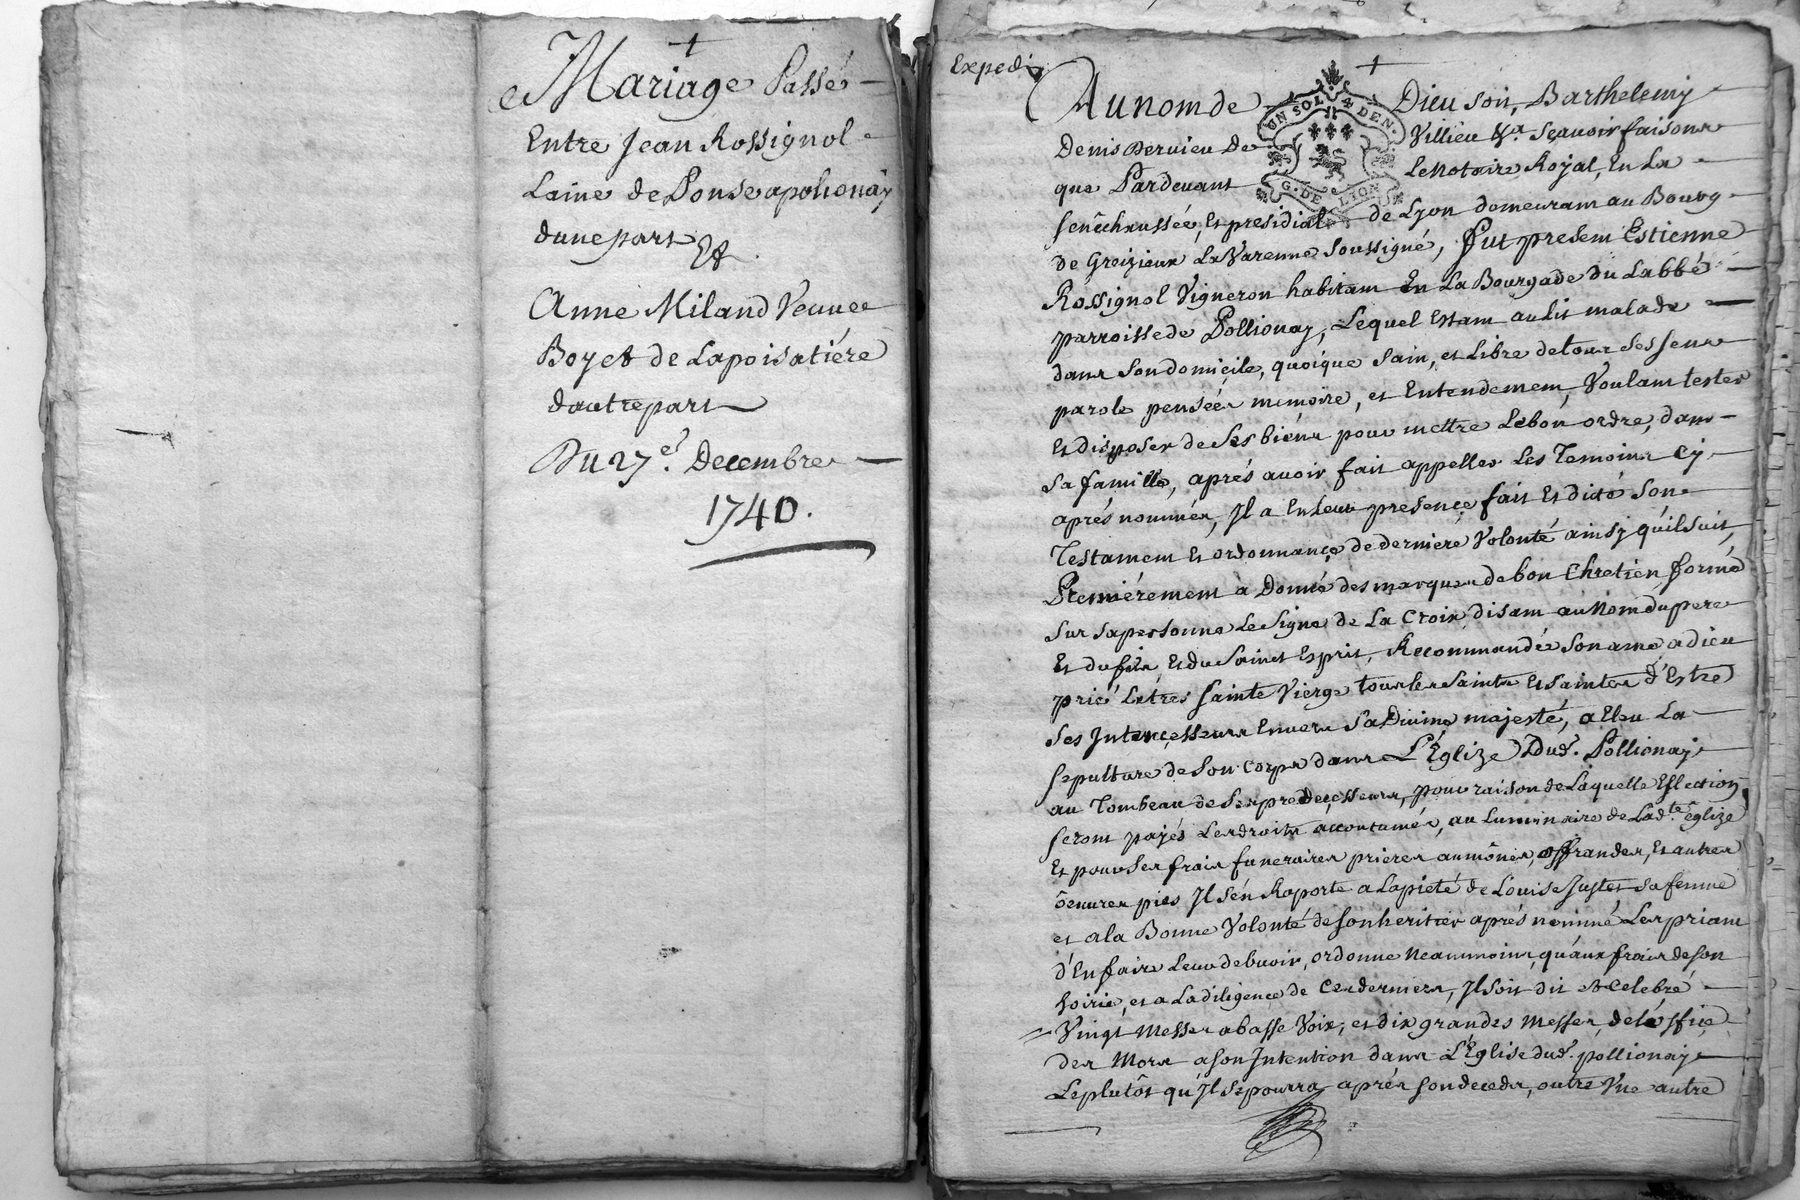 +
Mariage Passé
Entre Jean Rossignol
Laine de Ponse apolionay
dune part Et
Anne Miland Veuve
Boyet de Lapoisatiére
dautrepart
Du 27e. Decembre
1740.
Expedi
+
Au nom de Dieu soit, Barthelemy
UN SOL. 4 DEN.
G. DE LION
Denis Dervieu de Villieu Sçauoir faisons
que Pardeuant Le Notaire Royal, En La
senêchaussée, et presidial de Lyon demeurant au Bourg
de Greizieux La Varenne soussigné, fut present Estienne
Rossignol Vigneron habitant En La Bourgade du Labbé
parroisse de Pollionay, Lequel Estant au lit malade
dans son domiçile, quoique sain, et Libre de tous ses sens
parole pensées memoire, et Entendement, Voulant tester
Et disposer de ses biens pour mettre Le bon ordre, dans
sa famille, aprés auoir fait appeller Les Temoins cy
aprés nommés, Il a En leur presençe fait Et dicté son
Testament Et ordonnançe de derniére Volonté ainsy qu'il suit,
Premiérement à Donné des marques de bon Chretien formé
sur sa personne Le signe de La Croix disant au Nom du pere
Et du fils, Et du Saint Esprit, Recommandée son ame a dieu
prié La tres sainte Vierge tous les saints Et saintes d'Estre
ses Interçesseurs Enuers sa Diuine majesté, a Eleu La
sepulture de son corps dans L'Églize Dud. Pollionay
au Tombeau de ses predeçesseurs, pour raison de Laquelle Eslection
seront payés Les droits accoutumés, au Luminaire de Ladte. églize
Et pour ses frais funeraires prieres aumônes, offrandes, Et autres
ôeuures pies Il s'en Raporte a La pieté de Louise Juttet sa femme
et a la Bonne Volonté de son heritier aprés nommé Les priant
d'En faire Leur debuoir, ordonne Neanmoins, qu'aux frais de son
hoirie, et a La diligence de ces derniers, Il soit dit et Celebré
Vingt Messes a basse Voix, et dix grandes Messes de l'offiçe
des Morts a son Intention dans L'Église dud. pollionay
Le plutôt qu'Il se pourra aprés son decedes, outre Vne autre